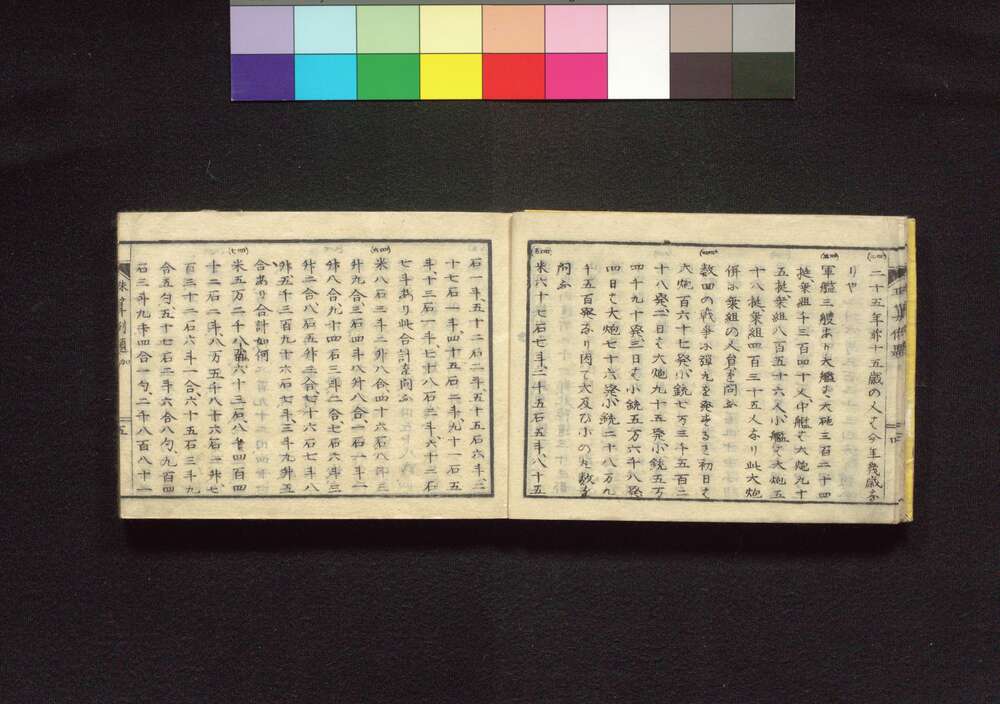 二十五年前十五歳の人ハ今年幾歳な
りや
軍艦三艘あり大艦ハ大砲三百二十四
挺乗組千三百四十人中艦ハ大炮九十
五挺乗組八百五十六人小艦ハ大炮五
十八挺乗組四百三十五人なり此大炮
併ニ乗組の人員を問ふ
数四の戦争ニ弾丸を発せるに初日ハ
大炮百六十七発小銃七万三千五百二
十八発二日ハ大炮九十五発小銃五万
四千九十発三日ハ小銃五万六千八発
四日ハ大炮七十六発小銃二十八万九
千五百発なり因て大及び小の丸数を
問ふ
米六十七石七斗二千五石五斗八十五
石一斗五十二石二斗五十五石六斗三
十七石一斗四十五石二斗九十一石五
斗十三石一斗七十八石二斗六十二石
七斗あり此合計を問ふ
米八石三斗二升八合四十六石八升三
升九合三石四斗八升八合一石一斗二
升八合九十四石三斗二合七石六斗三
升二合八石五升三合七十六石七斗八
升五千三百九十六石七斗三斗九升五
合あり合計如何
米五万二千八百六十三石八斗四百四
十二石二斗八万五千八十六石二升七
百三十二石六斗一合六十五石三斗九
合五勺五十七石二斗六合八勺九百四
石三斗九升四合一勺二千八百八十一